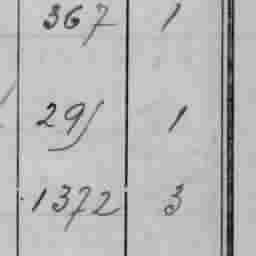 367 1
295 1
1372 3